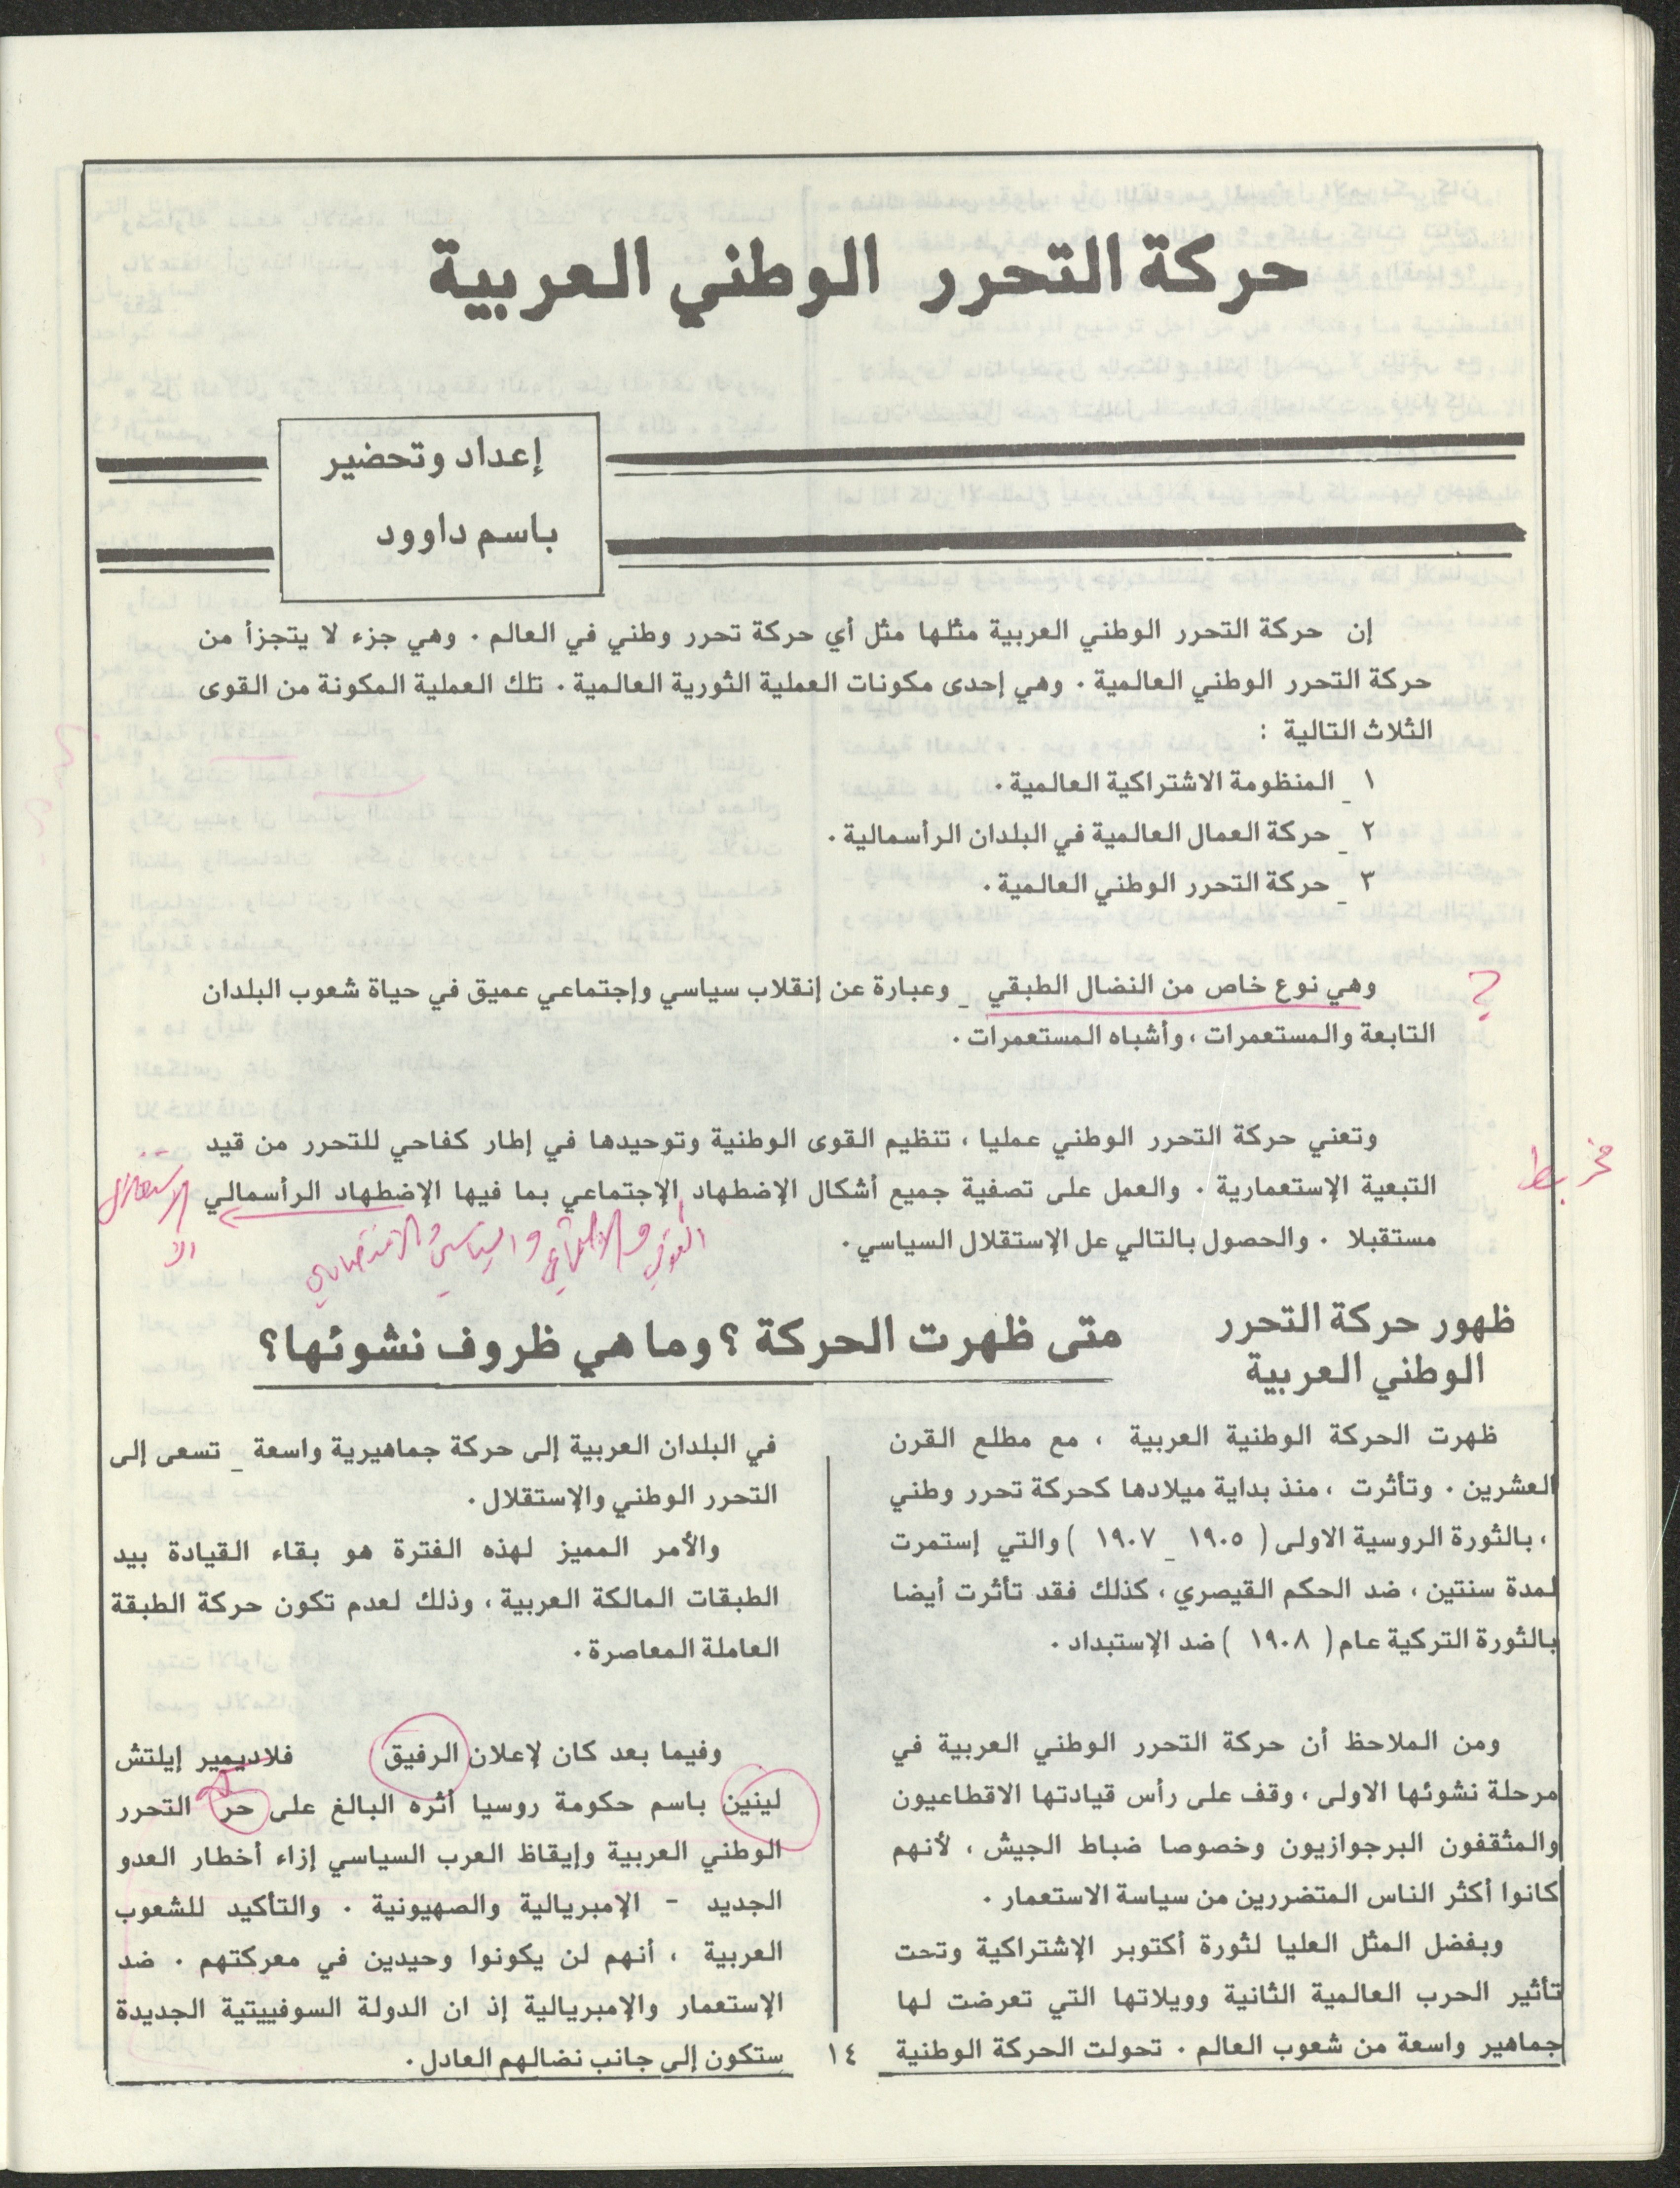 حركة التحرر الوطني العربية
إعداد وتحضير
باسم داوود
إن حركة التحرر الوطني العربية مثلها مثل أي حركة تحرر وطني في العالم . وهي جزء لا يتجزأ من
حركة التحرر الوطني العالمية . وهي إحدى مكونات العملية الثورية العالمية . تلك العملية المكونة من القوى
الثلاث التالية :
١ _ المنظومة الاشتراكية العالمية .
٢ _ حركة العمال العالمية في البلدان الرأسمالية .
٣ _ حركة التحرر الوطني العالمية .
؟
وهي نوع خاص من النضال الطبقي _ وعبارة عن إنقلاب سياسي وإجتماعي عميق في حياة شعوب البلدان
التابعة والمستعمرات ، وأشباه المستعمرات .
وتعني حركة التحرر الوطني عمليا ، تنظيم القوى الوطنية وتوحيدها في إطار كفاحي للتحرر من قيد
التبعية الإستعمارية . والعمل على تصفية جميع أشكال الإضطهاد الإجتماعي بما فيها الإضطهاد الرأسمالي
مستقبلا . والحصول بالتالي عل الإستقلال السياسي .
ظهور حركة التحرر
الوطني العربية
متى ظهرت الحركة ؟ وما هي ظروف نشوئها؟
ظهرت الحركة الوطنية العربية ، مع مطلع القرن
العشرين . وتأثرت ، منذ بداية ميلادها كحركة تحرر وطني
، بالثورة الروسية الاولى ( ١٩٠٥ _ ١٩٠٧ ) والتي إستمرت
لمدة سنتين ، ضد الحكم القيصري ، كذلك فقد تأثرت أيضا
بالثورة التركية عام ( ١٩٠٨ ) ضد الإستبداد .
ومن الملاحظ أن حركة التحرر الوطني العربية في
مرحلة نشوئها الاولى ، وقف على رأس قيادتها الاقطاعيون
والمثقفون البرجوازيون وخصوصا ضباط الجيش ، لأنهم
كانوا أكثر الناس المتضررين من سياسة الاستعمار .
وبفضل المثل العليا لثورة أكتوبر الإشتراكية وتحت
تأثير الحرب العالمية الثانية وويلاتها التي تعرضت لها
جماهير واسعة من شعوب العالم . تحولت الحركة الوطنية
في البلدان العربية إلى حركة جماهيرية واسعة _ تسعى إلى
التحرر الوطني والإستقلال .
والأمر المميز لهذه الفترة هو بقاء القيادة بيد
الطبقات المالكة العربية ، وذلك لعدم تكون حركة الطبقة
العاملة المعاصرة .
وفيما بعد كان لإعلان الرفيق فلاديمير إيلتش
لينين باسم حكومة روسيا أثره البالغ على حر التحرر
الوطني العربية وإيقاظ العرب السياسي إزاء أخطار العدو
الجديد - الإمبريالية والصهيونية . والتأكيد للشعوب
العربية ، أنهم لن يكونوا وحيدين في معركتهم . ضد
الإستعمار والإمبريالية إذ ان الدولة السوفييتية الجديدة
ستكون إلى جانب نضالهم العادل .
١٤